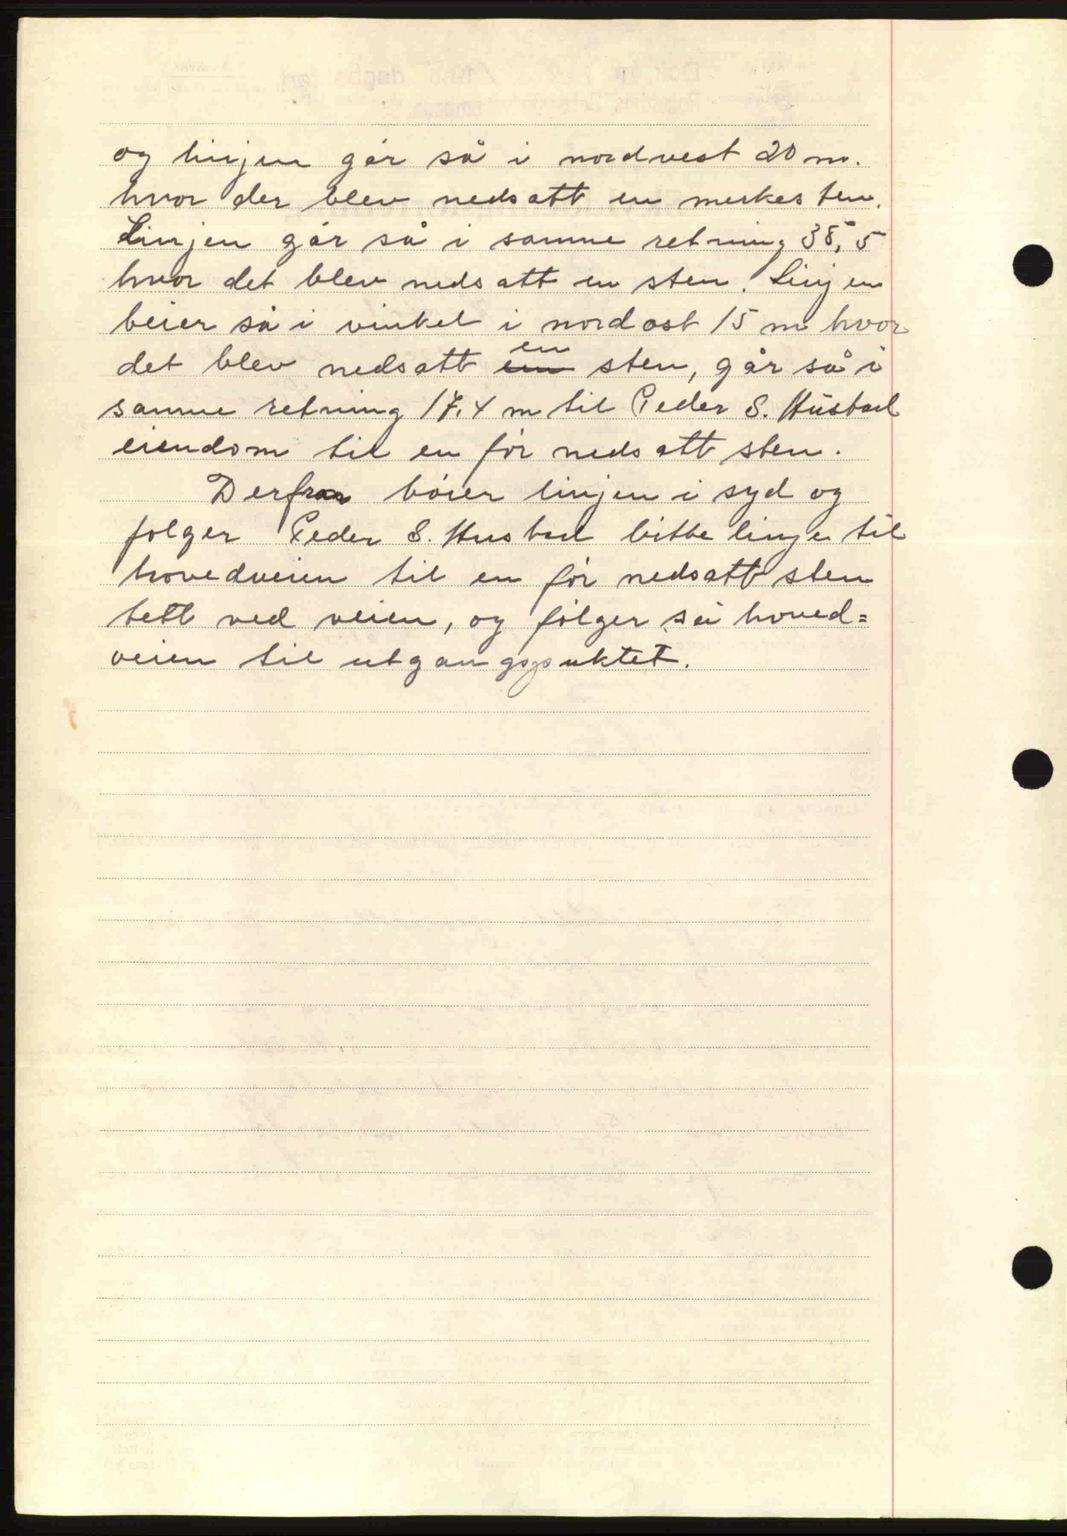 og linjen går så i nordvest 20 m.
hvor der blev nedsatt en merkesten.
Linjen går så i samme retning 35,5
hvor det blev nedsatt en sten. Linjen
beier så i vinkel i nordost 15 m hvor
det blev nedsatt en sten, går så i
samme retning 17,4 m til Peder S. Hustad
eiendom til en før nedsatt sten.
Derfra bøier linjen i syd og
følger Peder S. Hustad bitte linje til
hovedveien til en før nedsatt sten
tett ved veien, og følger så hoved=
veien til utgangspuktet.